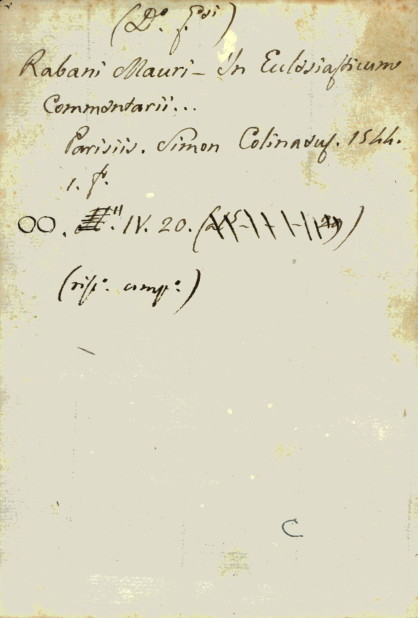 (Do. fcsi)
Rabani Mauri – In Eclesiasticum
Commentarii...
Parisiis. Simon Colinaeus. 1544.
1. fo.
OO. IV. 20.
(risp. comp.)
C